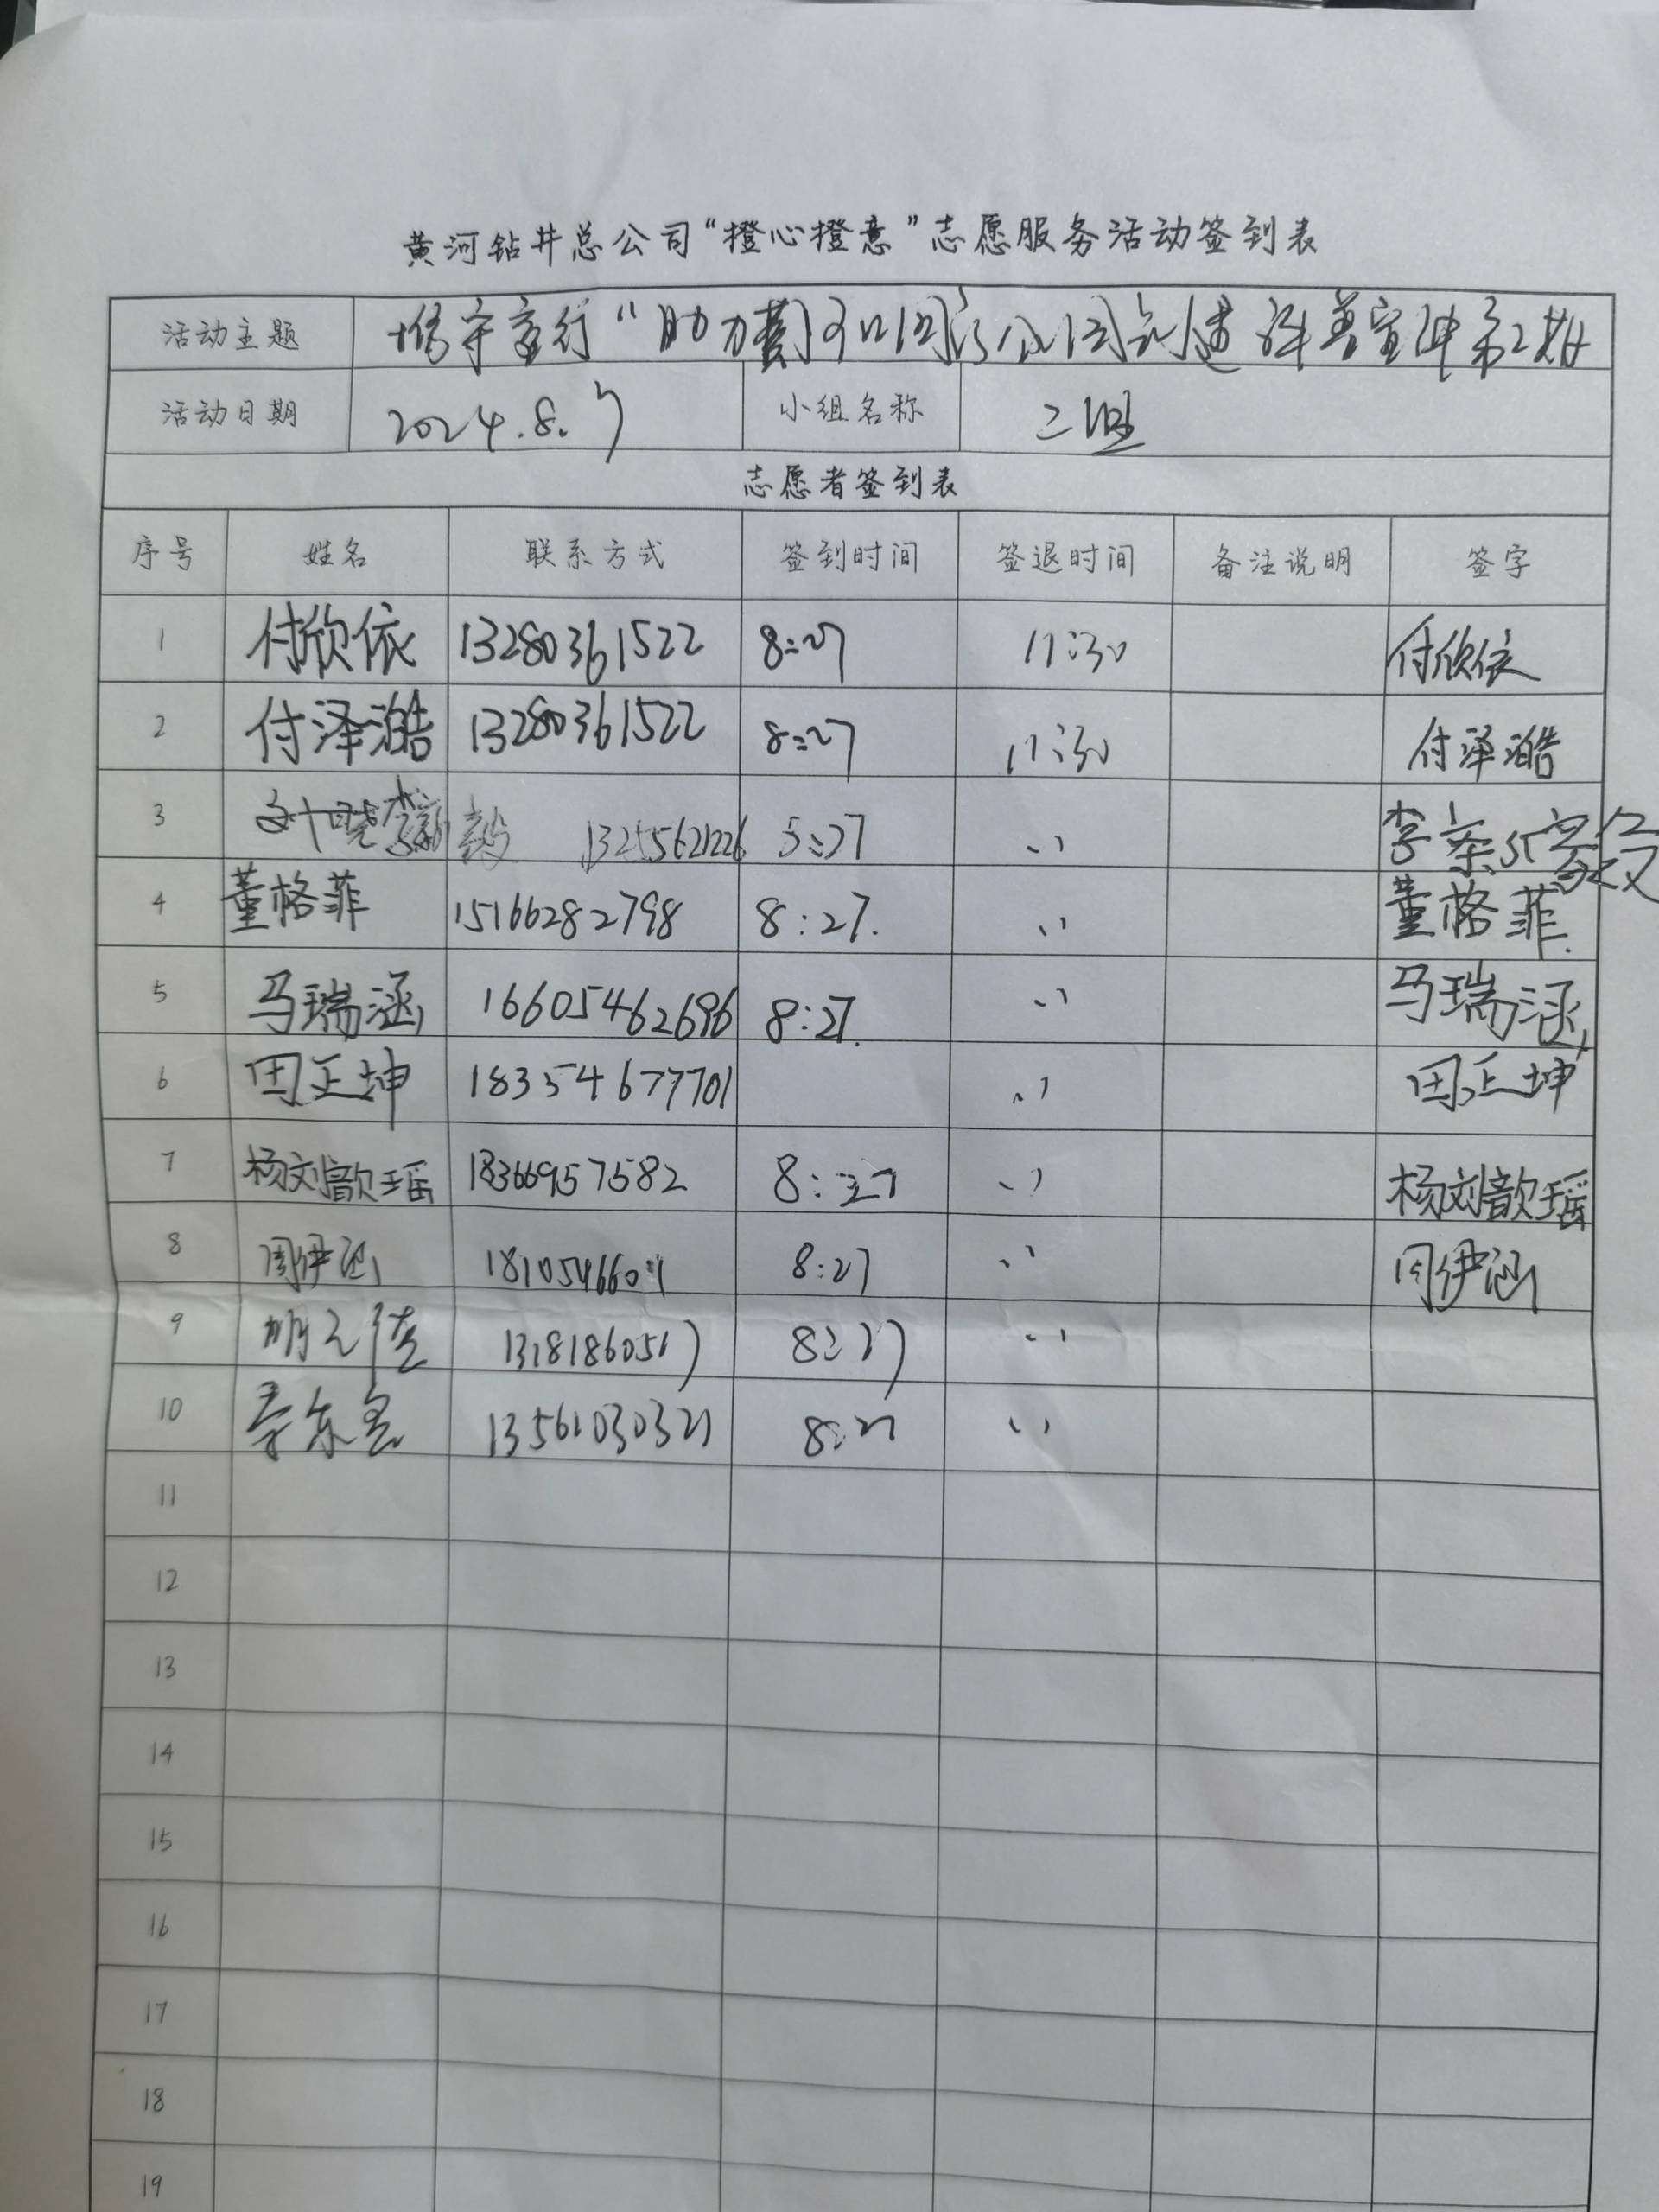 黄河钻井总公司“橙心橙意”志愿服务活动签到表
活动主题 行“助力黄河口国家公园创建 科普宣传第2期
活动日期 2024.8.7 小组名称 二组
志愿者签到表
序号 姓名 联系方式 签到时间 签退时间 备注说明 签字
1 付欣依 13280361522 8:27 11:30 付欣依
2 付泽澔 13280361522 8:27 11:30 付泽澔
3 13255621226 8:27 、、 李
4 董格菲 15166282798 8:27. 、、 董格菲.
5 马瑞涵 16605462696 8:27. 、、 马瑞涵
6 田正坤 18354677701 、、 田正坤
7 杨刘歆瑶 18366957582 8:27 、、 杨刘歆瑶
8 周伊涵 8:27 、、 周伊涵
9 13181860517 8:27 、、
10 13561030321 8:27 、、
11
12
13
14
15
16
17
18
19